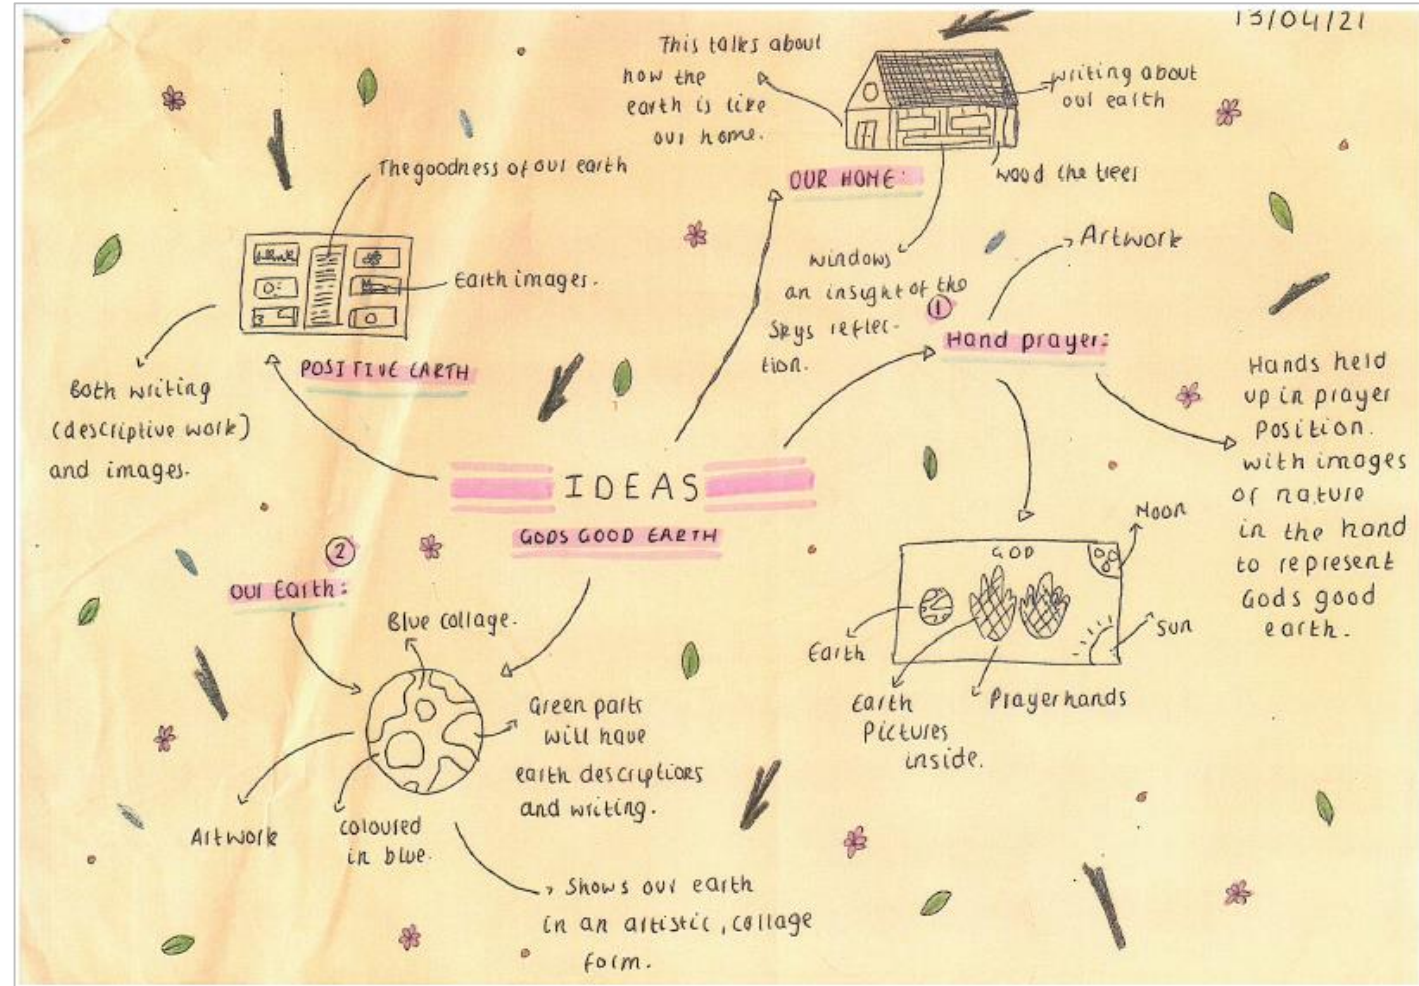 13/04/21
This talks about
how the
earth is like
our home.
writing about
our earth
wood the trees
OUR HOME:
windows
an insight of the
Skys reflec-
tion.
The goodness of our earth
Earth images.
POSITIVE EARTH
Both writing
(descriptive work)
and images.
Artwork
1
Hand prayer:
Hands held
up in prayer
Position.
with images
of nature
in the hand
to represent
Gods good
earth.
IDEAS
GODS GOOD EARTH
Moon
GOD
Sun
Earth
Earth
Pictures
inside.
Prayer hands
2
Our Earth:
Blue collage.
Green parts
will have
earth descriptions
and writing.
Artwork
Coloured
in blue.
Shows our earth
in an artistic, collage
form.